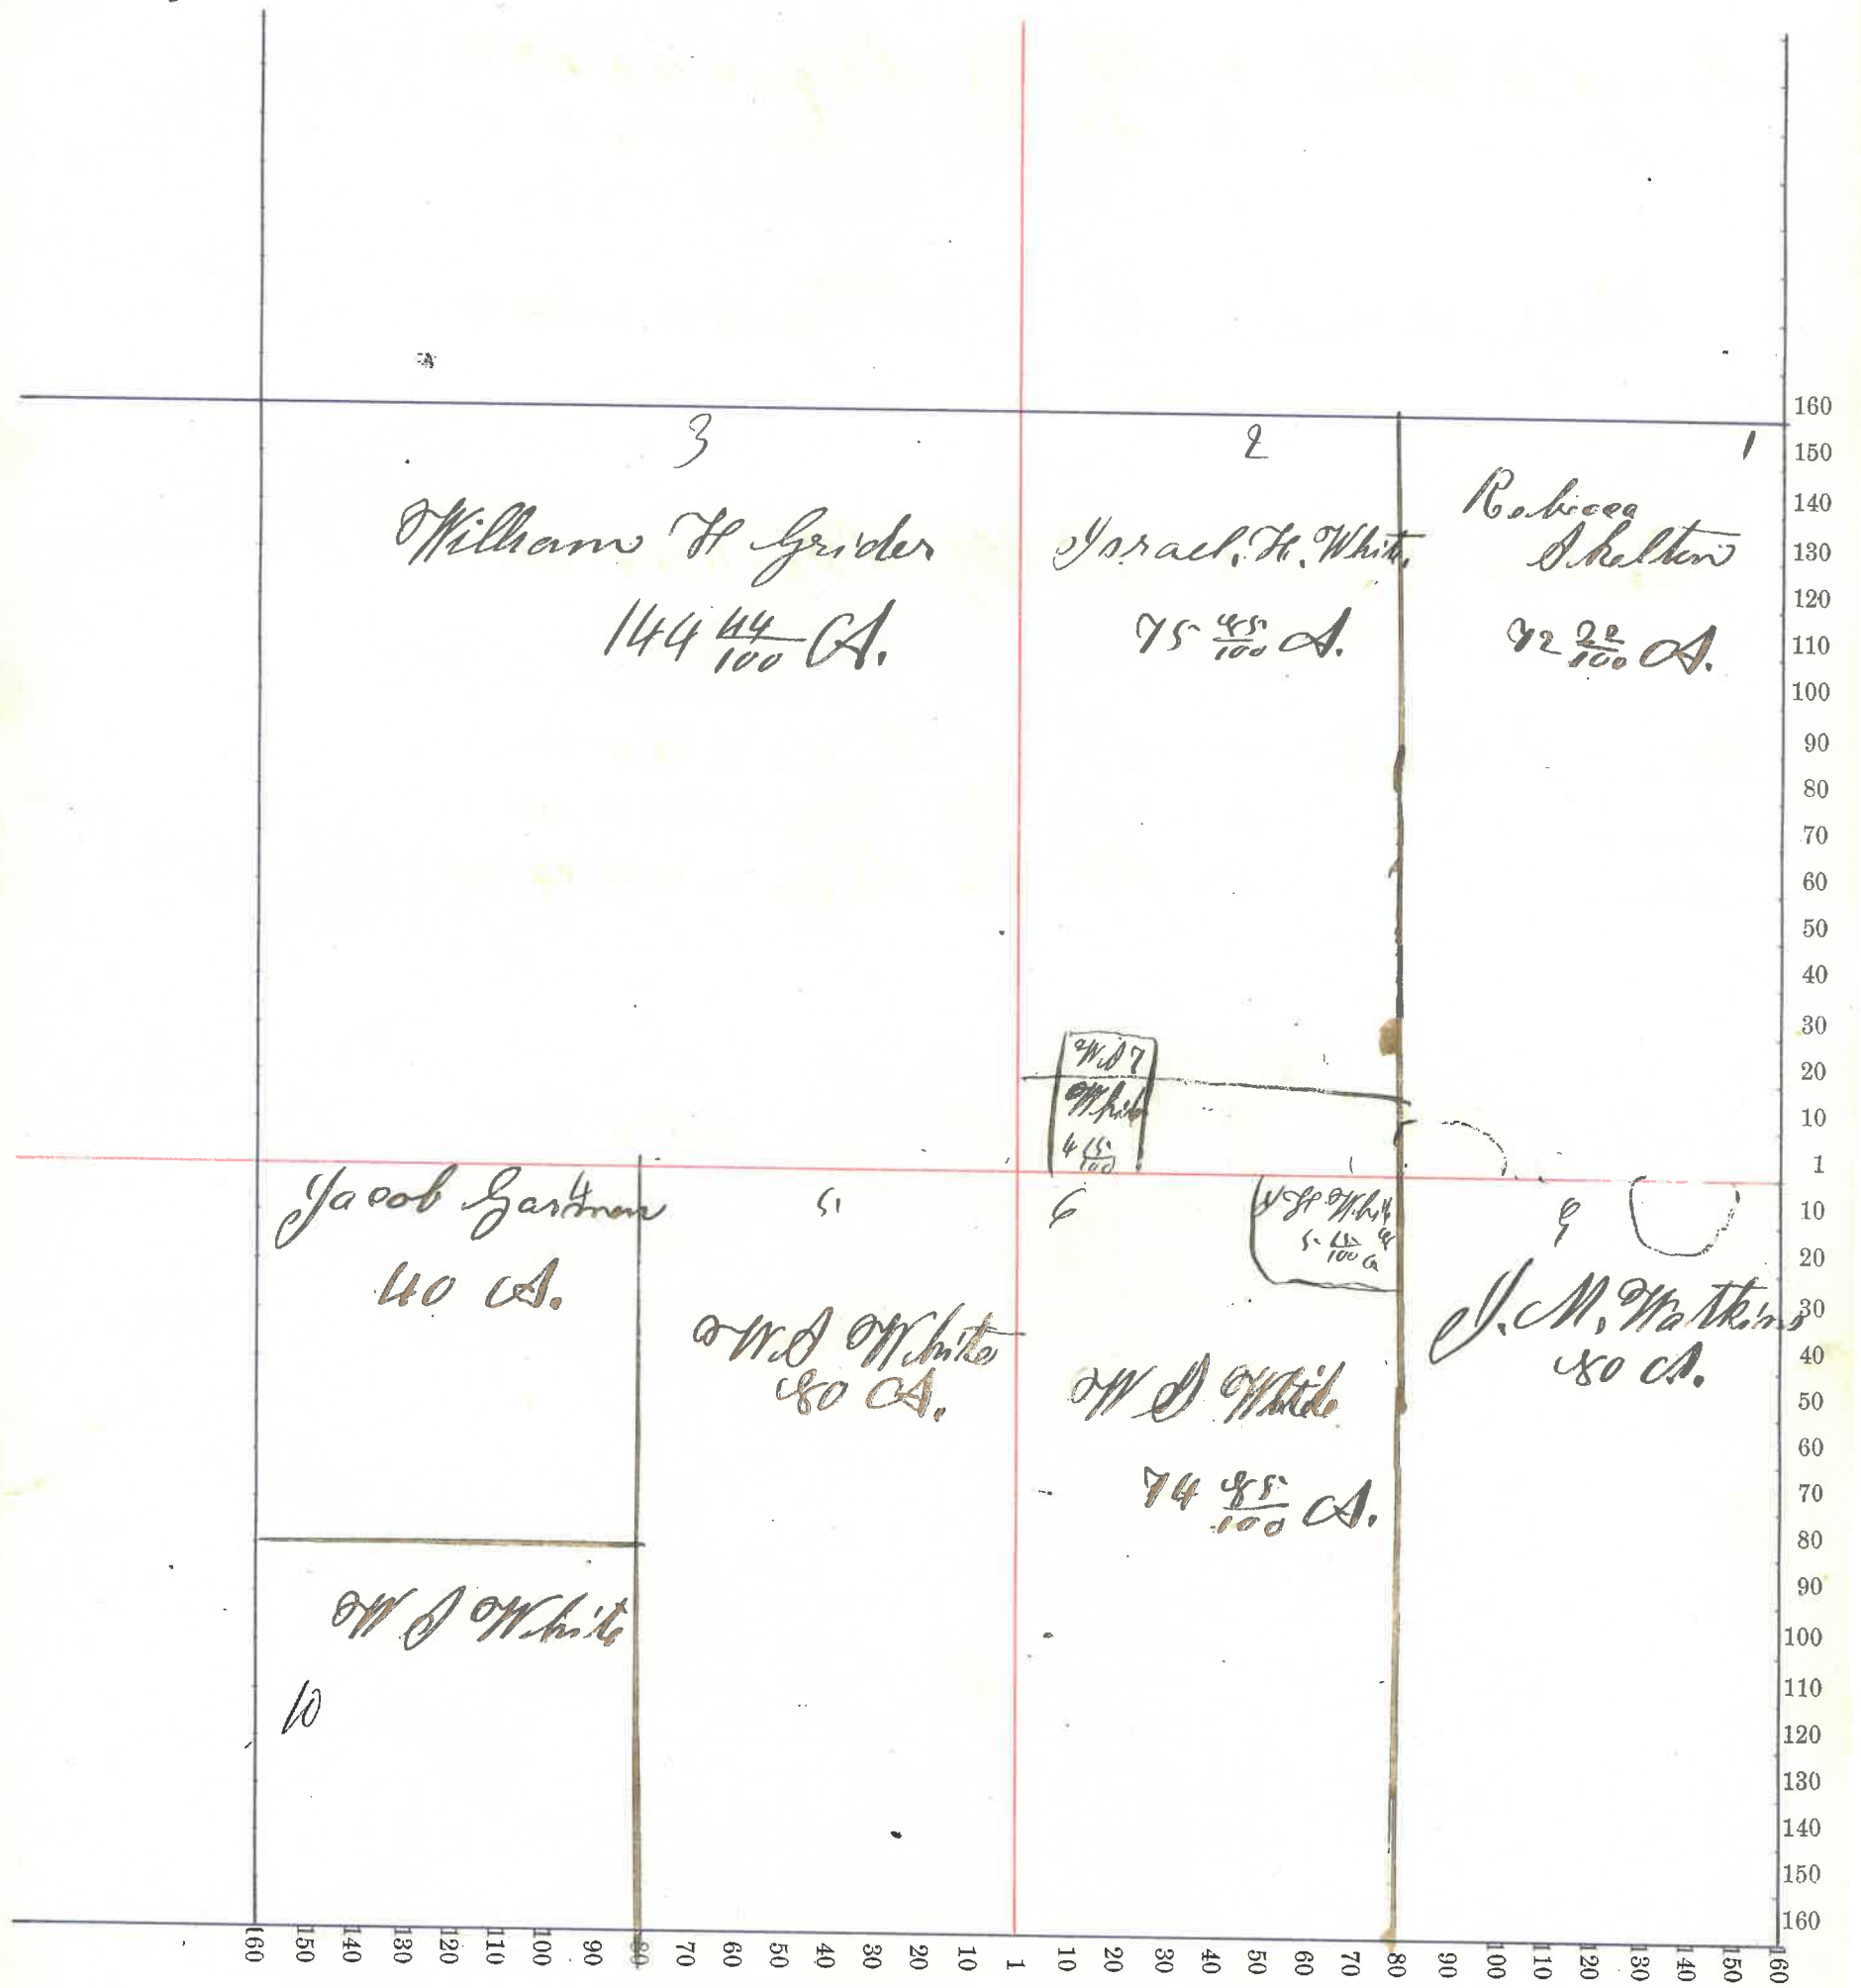 3
William H Grider
144 44/100 A.
2
Israel. H. White
75 85/100 A.
1
Rebecca
Skelton
72 22/100 A.
W S 7
White
4 15/100
Jacob
4
40 A.
5
W S White
80 A.
6
H White
5 15/100 a
W S White
74 85/100 A.
9
J. M. Watkins
80 A.
W S White
10
160
150
140
130
120
110
100
90
80
70
60
50
40
30
20
10
1
10
20
30
40
50
60
70
80
90
100
110
120
130
140
150
160
160 150 140 130 120 110 100 90 80 70 60 50 40 30 20 10 1 10 20 30 40 50 60 70 80 90 100 110 120 130 140 150 160